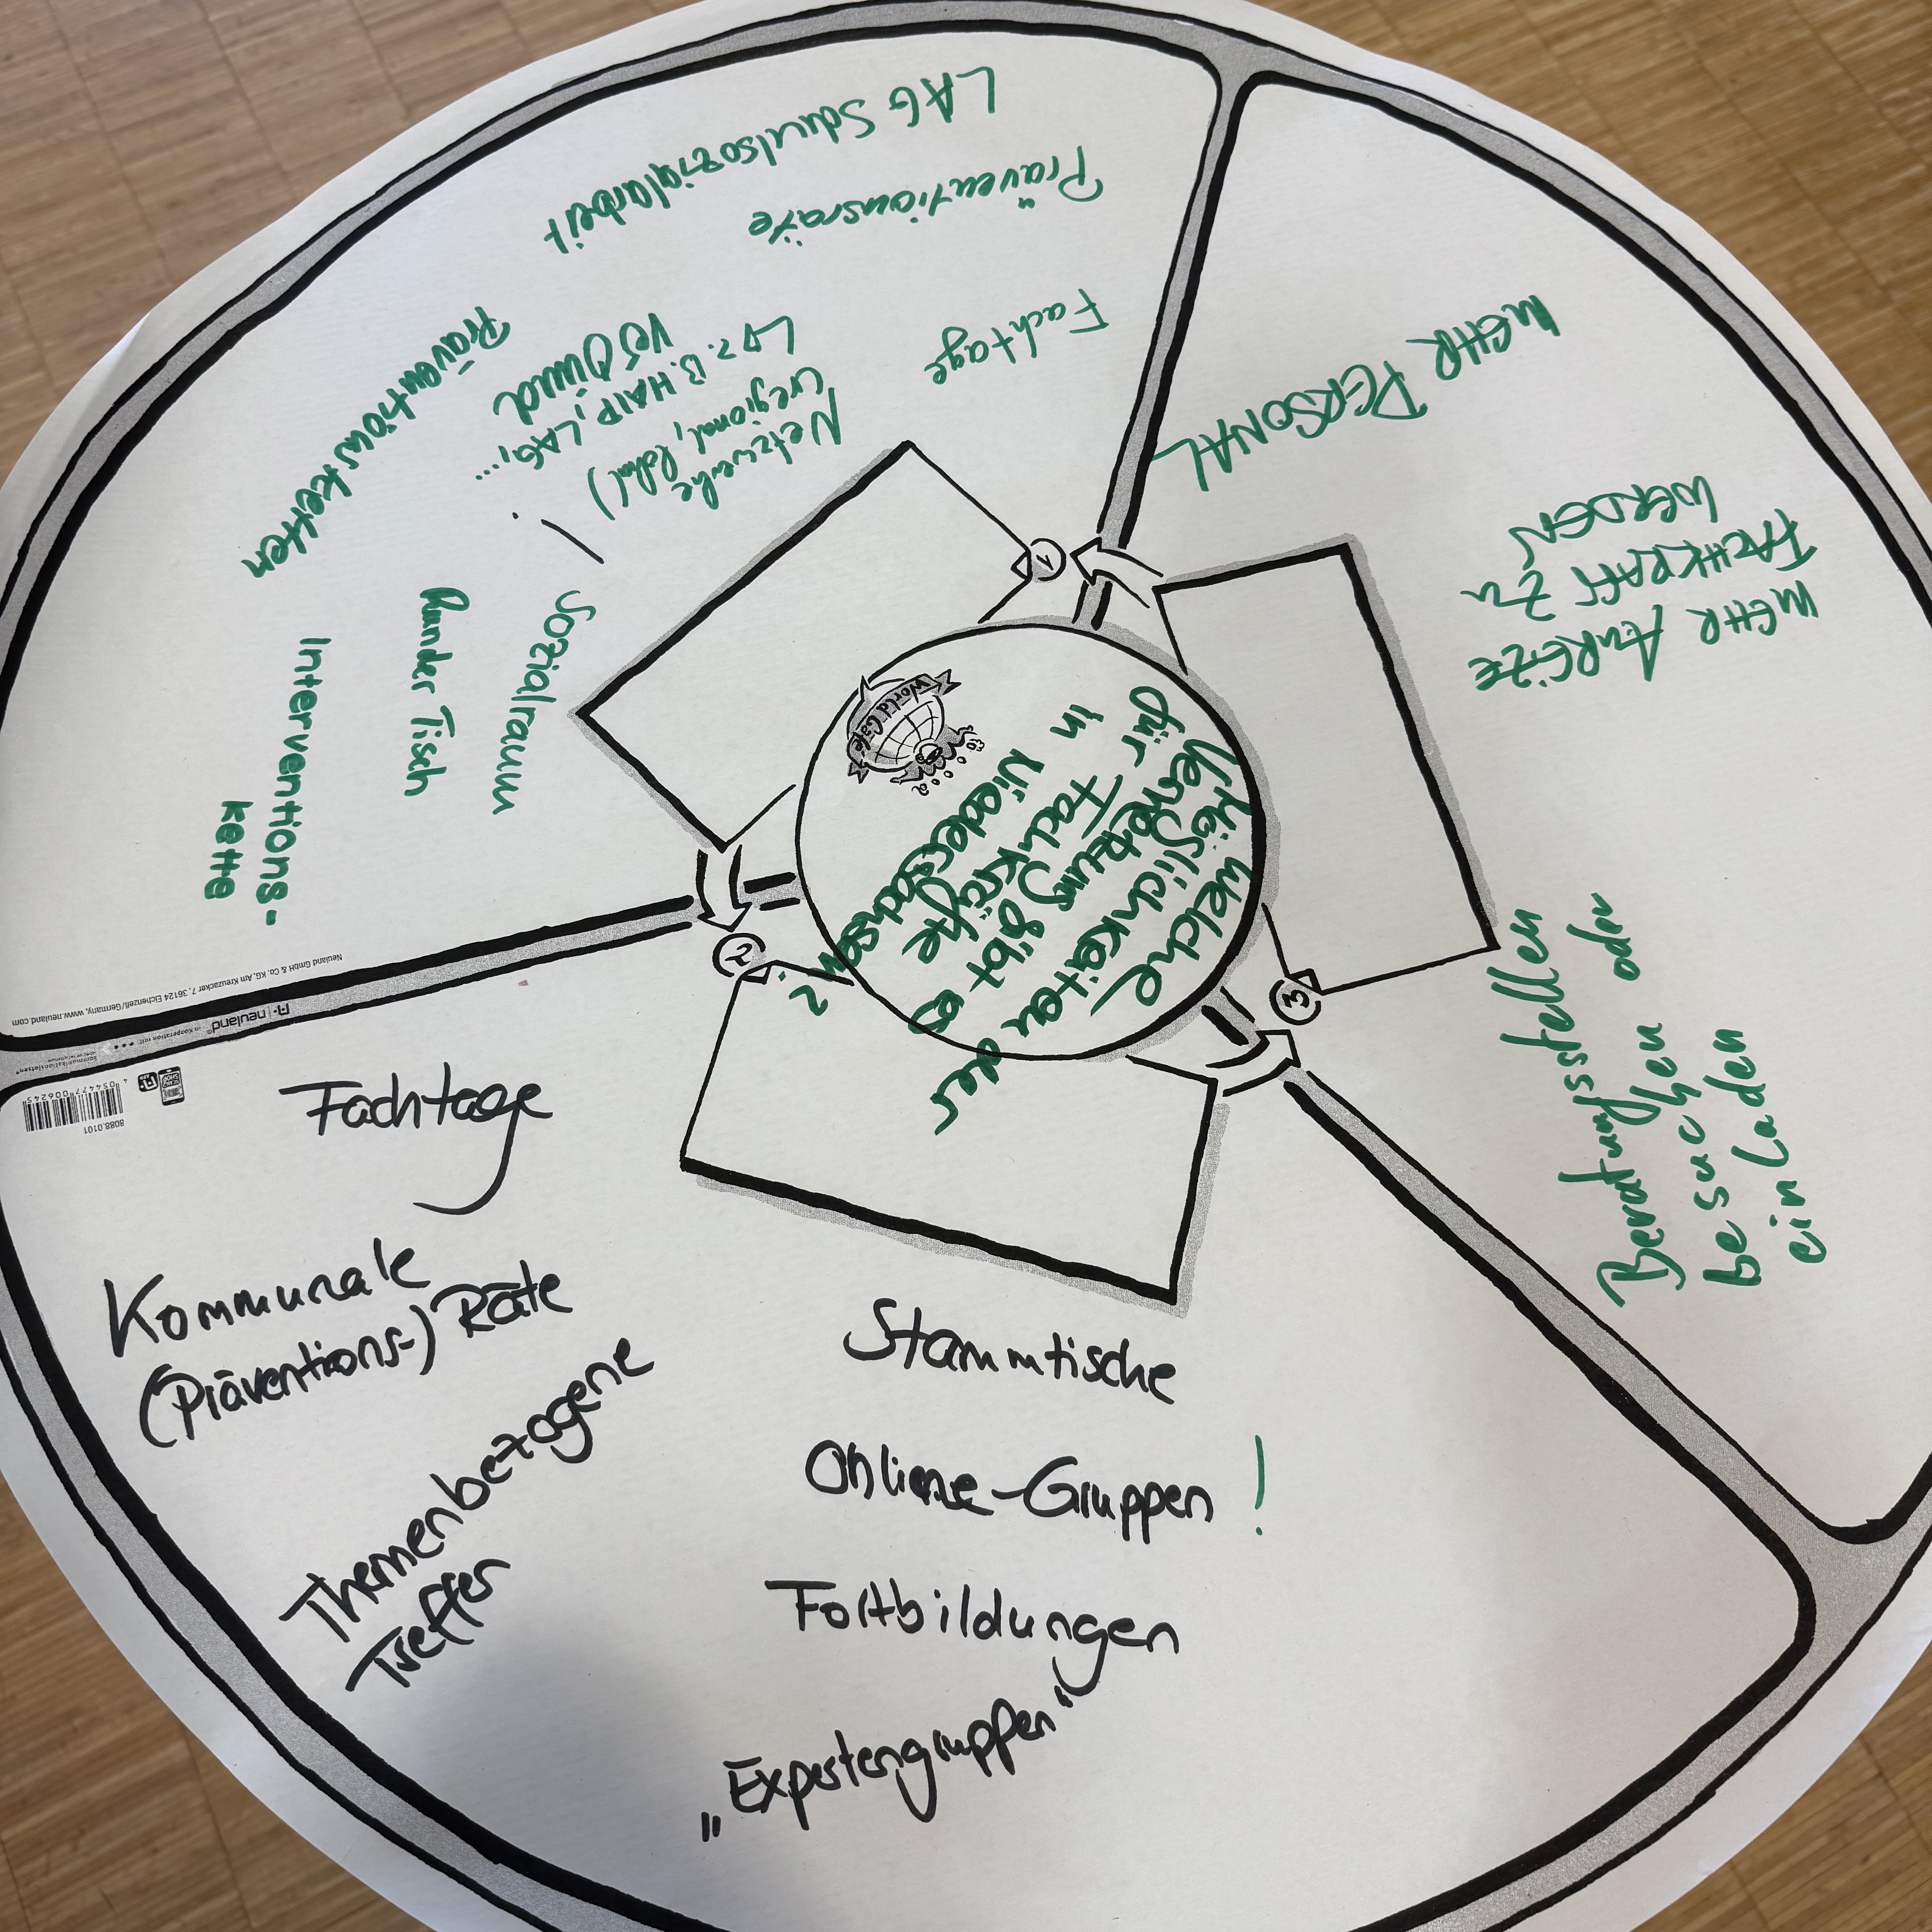 Welche
Möglichkeiten der
Vernetzung gibt es
für Fachkräfte
in Niedersachsen?
World Café
1
LAG Schulsozialarbeit
Präventionsräte
Fachtage
Netzwerke
(regional, lokal)
z.B. HAIP, LAG, ...
Präventionsketten
Sozialraum
Runder Tisch
Interventions-
kette
Neuland GmbH & Co. KG, Am Kreuzacker 7, 36124 Eichenzell/Germany, www.neuland.com
neuland
in Kooperation mit:
kommunikationslotsen
4 054477 006245
8088.0101
2
Fachtage
Kommunale
(Präventions-) Räte
Themenbezogene
Treffen
Stammtische
Online-Gruppen !
Fortbildungen
„Expertengruppen“
3
Beratungsstellen
besuchen oder
einladen
MEHR ANREIZE
FACHKRAFT ZU
WERDEN
MEHR PERSONAL